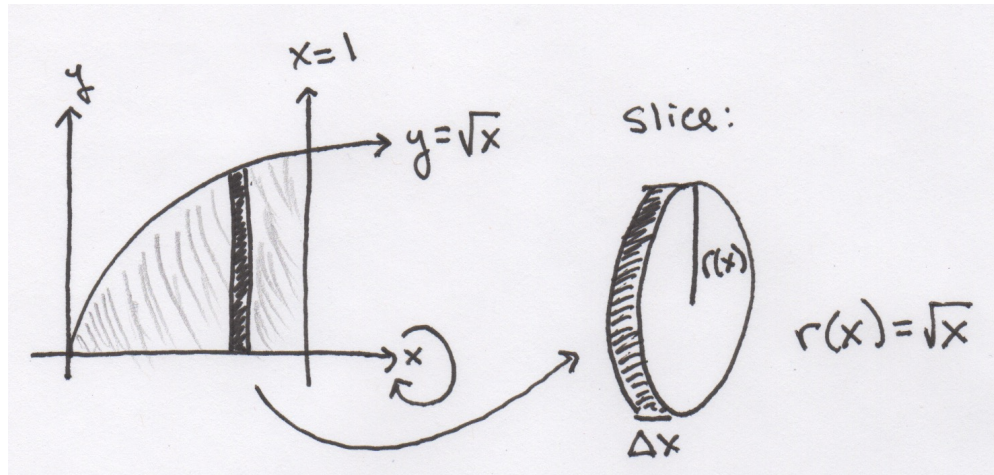 y
x=1
y=√x
x
slice:
r(x)
r(x)=√x
Δx